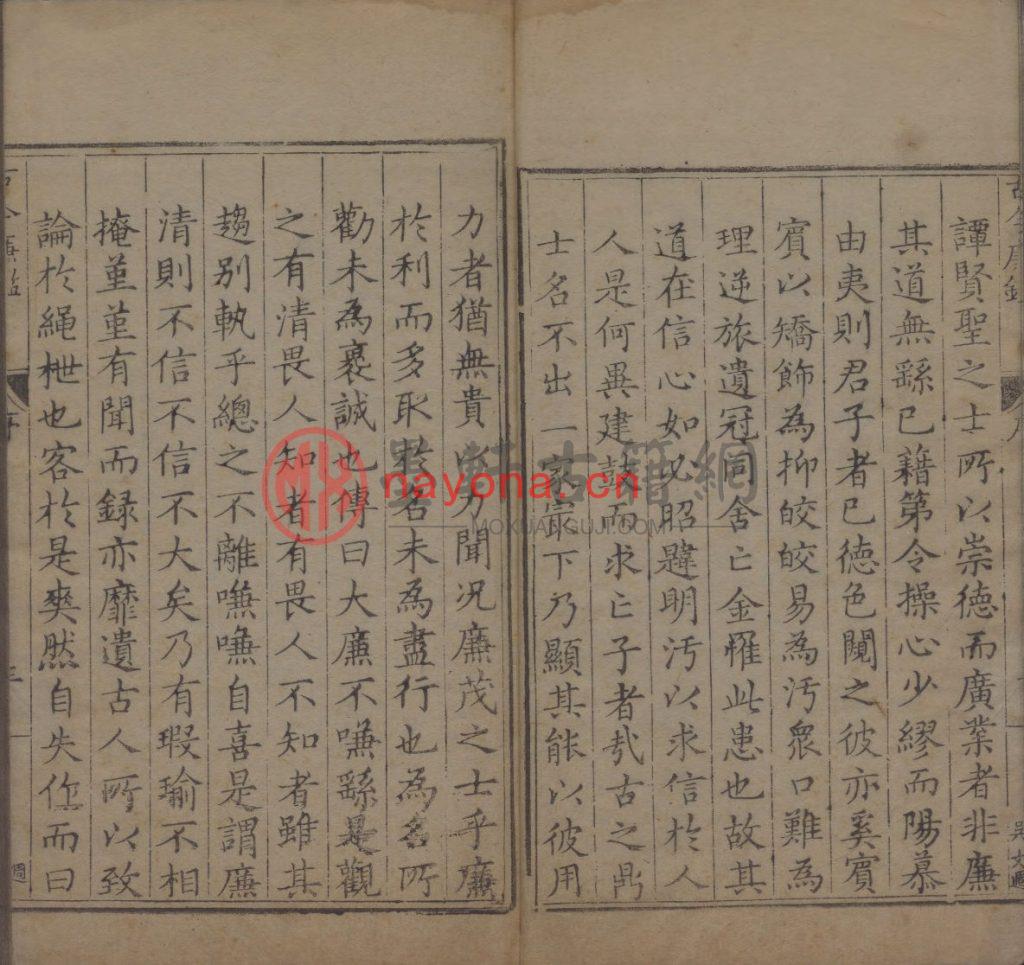 譚賢聖之士所以崇德而廣業者非廉
其道無繇已藉第令操心少繆而陽慕
由夷則君子者已德色闚之彼亦奚賓
賓以矯飾為抑皎皎易為汚衆口難為
理逆旅遺冠同舍亡金惟此患也故其
道在信心如必昭韙明汚以求信於人
人是何異建鼓而求亡子者㢤古之
士名不出一家冢下乃顯其能以彼用
力者猶無貴 力聞况廉茂之士乎廉
於利而多取於名未為盡行也為名所
勸未為裹誠也傳曰大廉不嗛繇是觀
之有清畏人知者有畏人不知者雖其
趨别執乎總之不離嗛嗛自喜是謂廉
清則不信不信不大矣乃有瑕瑜不相
掩堇堇有聞而録亦靡遺古人所以致
論於繩枻也客於是爽然自失作而曰
古今廉鑑
序
三
週
墨軒古籍網
nayona.cn
MOXUANGUJI.COM